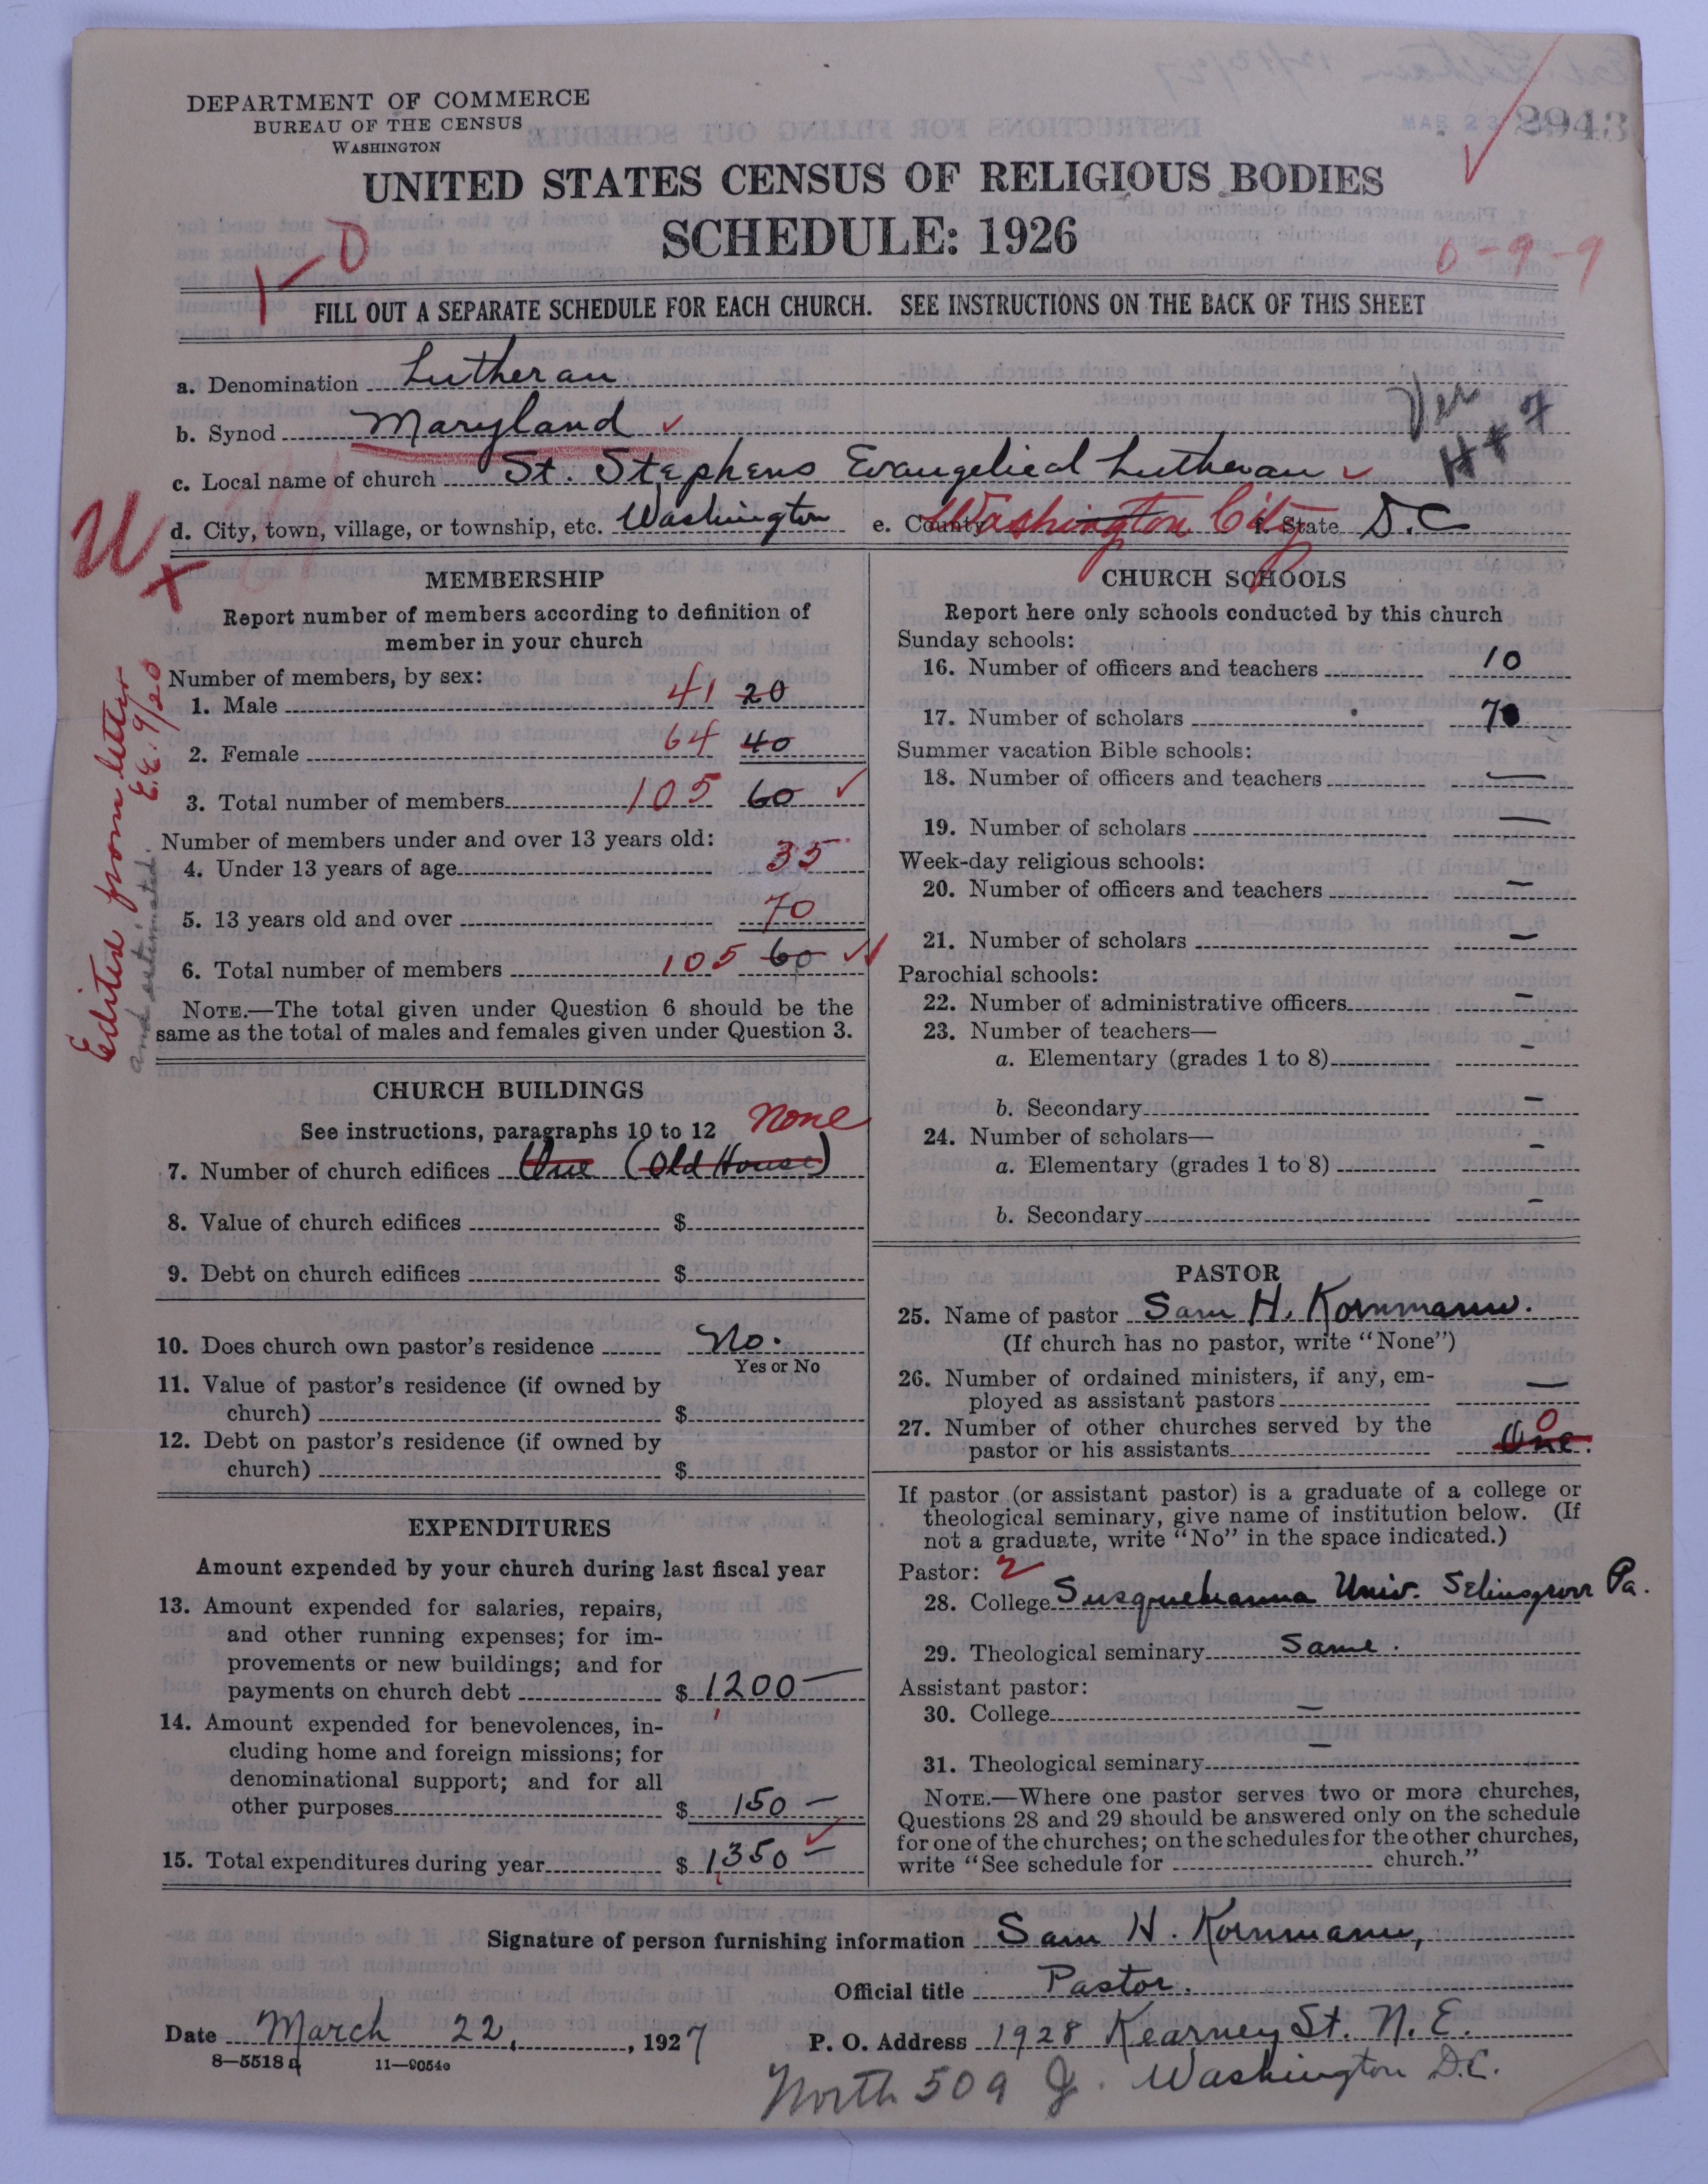 DEPARTMENT OF COMMERCE
BUREAU OF THE CENSUS
WASHINGTON
MAR 23
2943
UNITED STATES CENSUS OF RELIGIOUS BODIES
SCHEDULE: 1926
1-0
0-9-9
FILL OUT A SEPARATE SCHEDULE FOR EACH CHURCH. SEE INSTRUCTIONS ON THE BACK OF THIS SHEET
a. Denomination Lutheran
b. Synod Maryland ✓
c. Local name of church St. Stephens Evangelical Lutheran ✓
d. City, town, village, or township, etc. Washington e. County Washington City f. State D.C
U
x
Edited from letter
E.E. 9/20
and estimated.
MEMBERSHIP
Report number of members according to definition of
member in your church
Number of members, by sex:
1. Male 41 20
2. Female 64 40
3. Total number of members 105 60 ✓
Number of members under and over 13 years old:
4. Under 13 years of age 35
5. 13 years old and over 70
6. Total number of members 105 60 ✓
NOTE.—The total given under Question 6 should be the
same as the total of males and females given under Question 3.
CHURCH BUILDINGS
See instructions, paragraphs 10 to 12 None
7. Number of church edifices One (Old House)
8. Value of church edifices $
9. Debt on church edifices $
10. Does church own pastor's residence No.
Yes or No
11. Value of pastor's residence (if owned by
church) $
12. Debt on pastor's residence (if owned by
church) $
EXPENDITURES
Amount expended by your church during last fiscal year
13. Amount expended for salaries, repairs,
and other running expenses; for im-
provements or new buildings; and for
payments on church debt $ 1200 —
14. Amount expended for benevolences, in-
cluding home and foreign missions; for
denominational support; and for all
other purposes $ 150 —
15. Total expenditures during year $ 1350 —
CHURCH SCHOOLS
Report here only schools conducted by this church
Sunday schools:
16. Number of officers and teachers 10
17. Number of scholars 70
Summer vacation Bible schools:
18. Number of officers and teachers —
19. Number of scholars —
Week-day religious schools:
20. Number of officers and teachers —
21. Number of scholars —
Parochial schools:
22. Number of administrative officers —
23. Number of teachers—
a. Elementary (grades 1 to 8) —
b. Secondary —
24. Number of scholars—
a. Elementary (grades 1 to 8) —
b. Secondary —
PASTOR
25. Name of pastor Sam H. Kornmann.
(If church has no pastor, write "None")
26. Number of ordained ministers, if any, em-
ployed as assistant pastors —
27. Number of other churches served by the
pastor or his assistants One. 0
If pastor (or assistant pastor) is a graduate of a college or
theological seminary, give name of institution below. (If
not a graduate, write "No" in the space indicated.)
Pastor: 2
28. College Susquehanna Univ. Selinsgrove Pa.
29. Theological seminary Same.
Assistant pastor:
30. College —
31. Theological seminary —
NOTE.—Where one pastor serves two or more churches,
Questions 28 and 29 should be answered only on the schedule
for one of the churches; on the schedules for the other churches,
write "See schedule for church."
Signature of person furnishing information Sam H. Kornmann,
Official title Pastor.
Date March 22, 1927 P. O. Address 1928 Kearney St. N. E.
8—5518a 11—9054
North 509 J. Washington D.C.